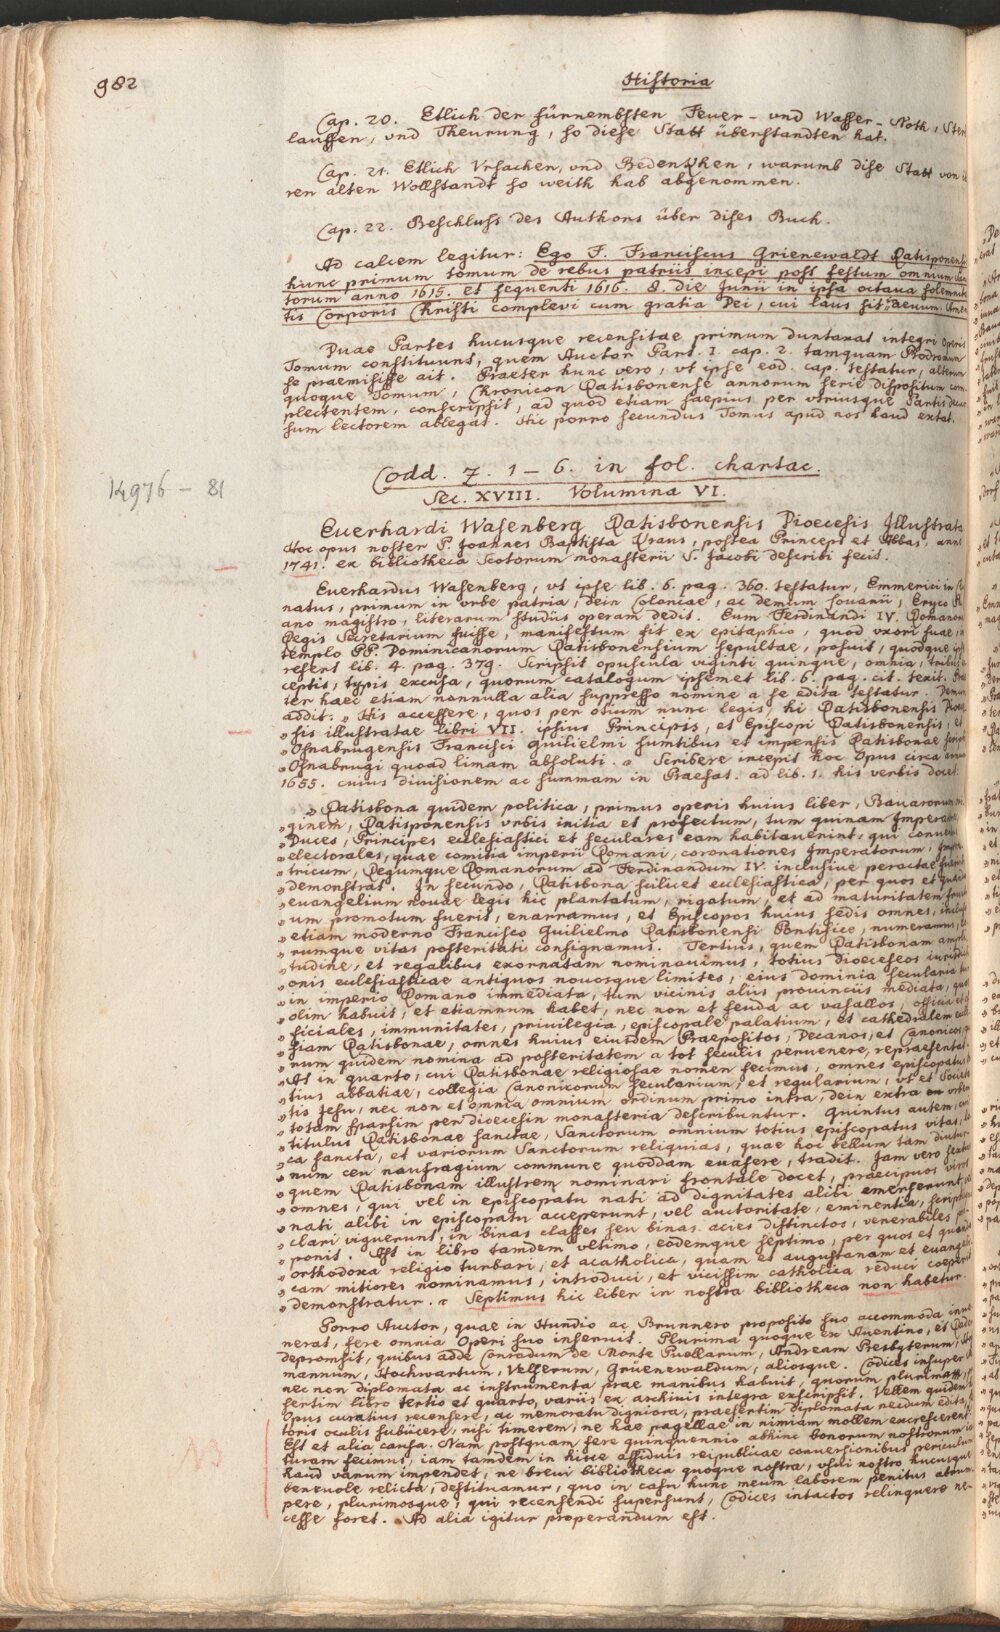 982
Historia
Cap. 20. Etlich der fürnembsten Feuer - und Wasser - Noth, Ster
lauffen, vnd Theurung, so diese Statt überstandten hat.
Cap. 21. Etlich Vrsachen, und Bedenckhen, warumb dise Statt von i
ren alten Wollstandt so weith hab abgenommen.
Cap. 22. Beschluss des Authors über dises Buch.
Ad calcem legitur: Ego F. Franciscus Grienewaldt Ratisponens
hunc primum tomum de rebus patriis incepi post festum omnium San
torum anno 1615. et sequenti 1616. 8. die Junii in ipsa octava solemni
tis Corporis Christi complevi cum gratia Dei, cui laus sit, aevum. Amen
Duae Partes hucusque recensitae primum duntaxat integri Operis
Tomum constituunt, quem Auctor Part. I. cap. 2. tamquam Prodromum
se praemisisse ait. Praeter hunc vero, vt ipse eod. cap. testatur, alterum
quoque Tomum, Chronicon Ratisbonense annorum serie dispositum com
plectentem, conscripsit, ad quod etiam saepius per vtriusque Partis decur
sum lectorem ablegat. Hic porro secundus Tomus apud nos haud extat.
14976 - 81
Codd. 7. 1 - 6. in fol. chartac.
Sec. XVIII. Volumina VI.
Euerhardi Wasenberg Ratisbonensis Dioecesis Illustrata
Hoc opus noster P. Joannes Baptista Kraus, postea Princeps et Abbas, anno
1741. ex bibliotheca Scotorum monasterii S. Jacobi describi fecit.
Euerhardus Wasenberg, vt ipse lib. 6. pag. 360. testatur, Emmerici in
natus, primum in vrbe patria, dein Coloniae, ac demum Louanii, Eryco
ano magistro, literarum studiis operam dedit. Eum Ferdinandi IV. Romanor
Regis Secretarium fuisse, manifestum fit ex epitaphio, quod vxori suae, in
templo PP. Dominicanorum Ratisbonensium sepultae, posuit, quodque ipse
refert lib. 4. pag. 379. Scripsit opuscula viginti quinque, omnia, tribus ex
ceptis, typis excusa, quorum catalogum ipsemet lib. 6. pag. cit. texit. Prae
ter haec etiam nonnulla alia suppresso nomine a se edita testatur. Demum
addit: „ His accessere, quos per otium nunc legis, hi Ratisbonensis Dioece
„ sis illustratae libri VII. ipsius Principis, et Episcopi Ratisbonensis, et
„ Osnabrugensis Francisci Guilielmi sumtibus et impensis Ratisbonae scripti
„ Osnabrugi quoad limam absoluti. „ Scribere incepit hoc Opus circa annum
1655. cuius diuisionem ac summam in Praefat. ad lib. 1. his verbis docet:
„ Ratisbona quidem politica, primus operis huius liber, Bauarorum ori
„ ginem, Ratisponensis vrbis initia et profectum, tum quinam Imperat
„ Duces, Principes ecclesiastici et seculares eam habitauerint; qui conuen
„ electorales, quae comitia imperii Romani, coronationes Imperatorum, Impera
„ tricum, Regumque Romanorum ad Ferdinandum IV. inclusiue peractae fuerint
„ demonstrat. In secundo, Ratisbona scilicet ecclesiastica, per quos et quando
„ euangelium nouae legis hic plantatum, rigatum, et ad maturitatem fruct
„ um promotum fuerit, enarramus, et Episcopos huius sedis omnes, incluso
„ etiam moderno Francisco Guilielmo Ratisbonensi Pontifice, numeramus, eo
„ rumque vitas posteritati consignamus. Tertius, quem Ratisbonam ampli
„ tudine, et regalibus exornatam nominauimus, totius dioeceseos iurisdicti
„ onis ecclesiasticae antiquos nouosque limites, eius dominia secularia tum
„ in imperio Romano immediata, tum vicinis aliis prouinciis mediata, quae
„ olim habuit, et etiamnum habet, nec non et feuda ac vasallos, officia et of
„ ficiales, immunitates, priuilegia, episcopale palatium, et cathedralem eccle
„ siam Ratisbonae, omnes huius eiusdem Praepositos, Decanos, et Canonicos, quo
„ num quidem nomina ad posteritatem a tot seculis peruenere, repraesentat.
„ At in quarto, cui Ratisbonae religiosae nomen fecimus, omnes episcopatus to
„ tius abbatiae, collegia Canonicorum secularium, et regularium, vt et Societa
„ tis Jesu, nec non et omnia omnium ordinum primo intra, dein extra vrbem
„ totam sparsim per dioecesin monasteria describuntur. Quintus autem, cui
„ titulus Ratisbonae sanctae, Sanctorum omnium totius episcopatus vitas, lo
„ ca sancta, et variorum Sanctorum reliquias, quae hoc bellum tam diutur
„ num ceu naufragium commune quoddam euasere, tradit. Jam vero sextus
„ quem Ratisbonam illustrem nominari frontale docet, praecipuos viros
„ omnes, qui vel in episcopatu nati ad dignitates alibi emerserunt, vel
„ nati alibi in episcopatu acceperunt, vel auctoritate, eminentia, scriptis
„ clari viguerunt, in binas classes seu binas acies distinctos, venerabiles pro
„ ponit. Est in libro tandem vltimo, eodemque septimo, per quos et quando
„ orthodoxa religio turbari, et acatholica, quam et augustanam et euangeli
„ cam mitiores nominamus, introduci, et vicissim catholica reduci coeperit
„ demonstratur. „ Septimus hic liber in nostra bibliotheca non habetur.
Porro Auctor, quae in Hundio ac Brunnero proposito suo accommoda inue
nerat, fere omnia Operi suo inseruit. Plurima quoque ex Auentino, et Rade
depromsit, quibus adde Conradum de Monte Puellarum, Andream Presbyterum,
mannum, Hochwartum, Velserum, Grüenewaldum, aliosque. Codices insuper
nec non diplomata ac instrumenta prae manibus habuit, quorum plurima, prae
sertim libro tertio et quarto, variis ex archiuis integra exscripsit. Vellem quidem
Opus curatius recensere, ac memoratu digniora, praesertim diplomata necdum edita,
toris oculis subiicere, nisi timerem, ne hae pagellae in nimiam mollem excrescerent
NB Est et alia causa. Nam postquam fere quinquennio abhinc bonorum nostrorum iac
turam fecimus, iam tandem in hisce assiduis reipublicae conuersionibus periculum
haud vanum impendet, ne breui bibliotheca quoque nostra, vsui nostro hucusque
beneuole relicta, destituamur, quo in casu hunc meum laborem penitus abrum
pere, plurimosque, qui recensendi supersunt, Codices intactos relinquere ne
cesse foret. Ad alia igitur properandum est.